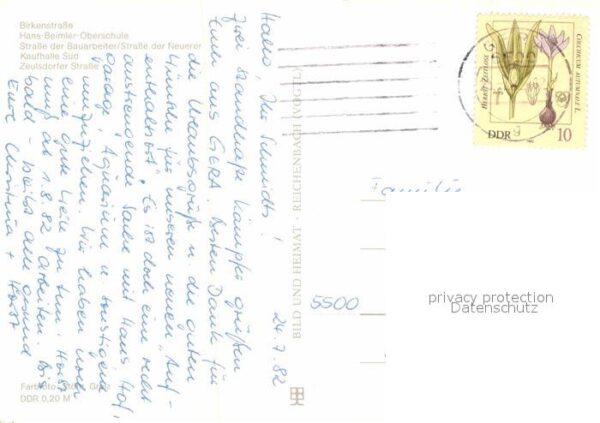 Birkenstraße
Hans-Beimler-Oberschule
Straße der Bauarbeiter/Straße der Neuerer
Kaufhalle Süd
Zeulsdorfer Straße
24.7.82
Hallo, Ihr Schmidts!
Zwei standhafte Kämpfer grüßen
Euch aus GERA. Besten Dank für
die Urlaubsgrüße u. die guten
Wünsche für unseren neuen „Auf-
enthaltsort“. Es ist doch eine recht
anstrengende Sache mit Haus, Hof,
Garage, Aquarium u. sonstigem
umzuziehen. Wir haben noch
eine gute Weile zu tun. Horst
muß ab 1.8.82 arbeiten. Bis
bald – bleibt alle gesund
Eure Christina + Horst
Farbfoto: Gera
DDR 0,20 M
BILD UND HEIMAT · REICHENBACH (VOGTL)
HERBST-ZEITLOSE
COLCHICUM AUTUMNALE L.
DDR 10
Familie
5500
privacy protection
Datenschutz